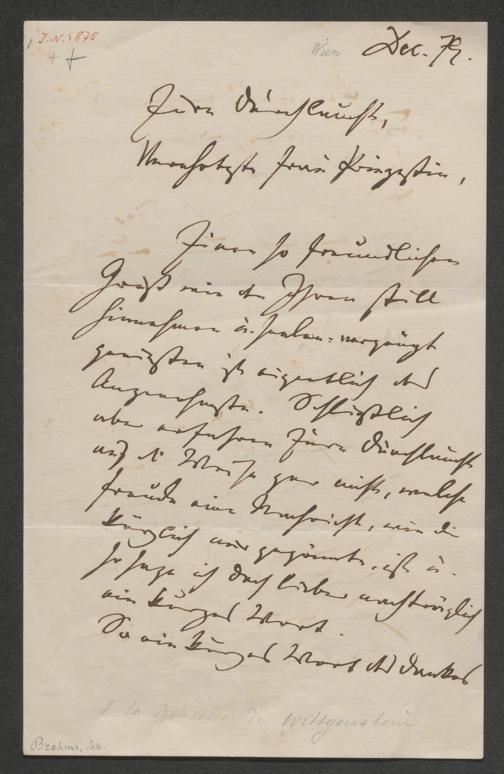 J.N. 5875
Wien Dec. 79.
Eure Durchlaucht,
Verehrteste Frau Prinzessin,
Einen so freundlichen
Gruß wie den Ihren still
hinnehmen u. seelen-vergnügt
genießen ist eigentlich das
Angenehmste. Schließlich
aber erfahren Eure Durchlaucht
auf d. Weise gar nicht, welche
Freude eine Nachricht, wie die
kürzlich mir gegönnte, ist u.
so sage ich doch lieber nachträglich
ein kurzes Wort.
So ein kurzes Wort des Dankes
à la Princesse de Wittgenstein
Brahms, Joh.